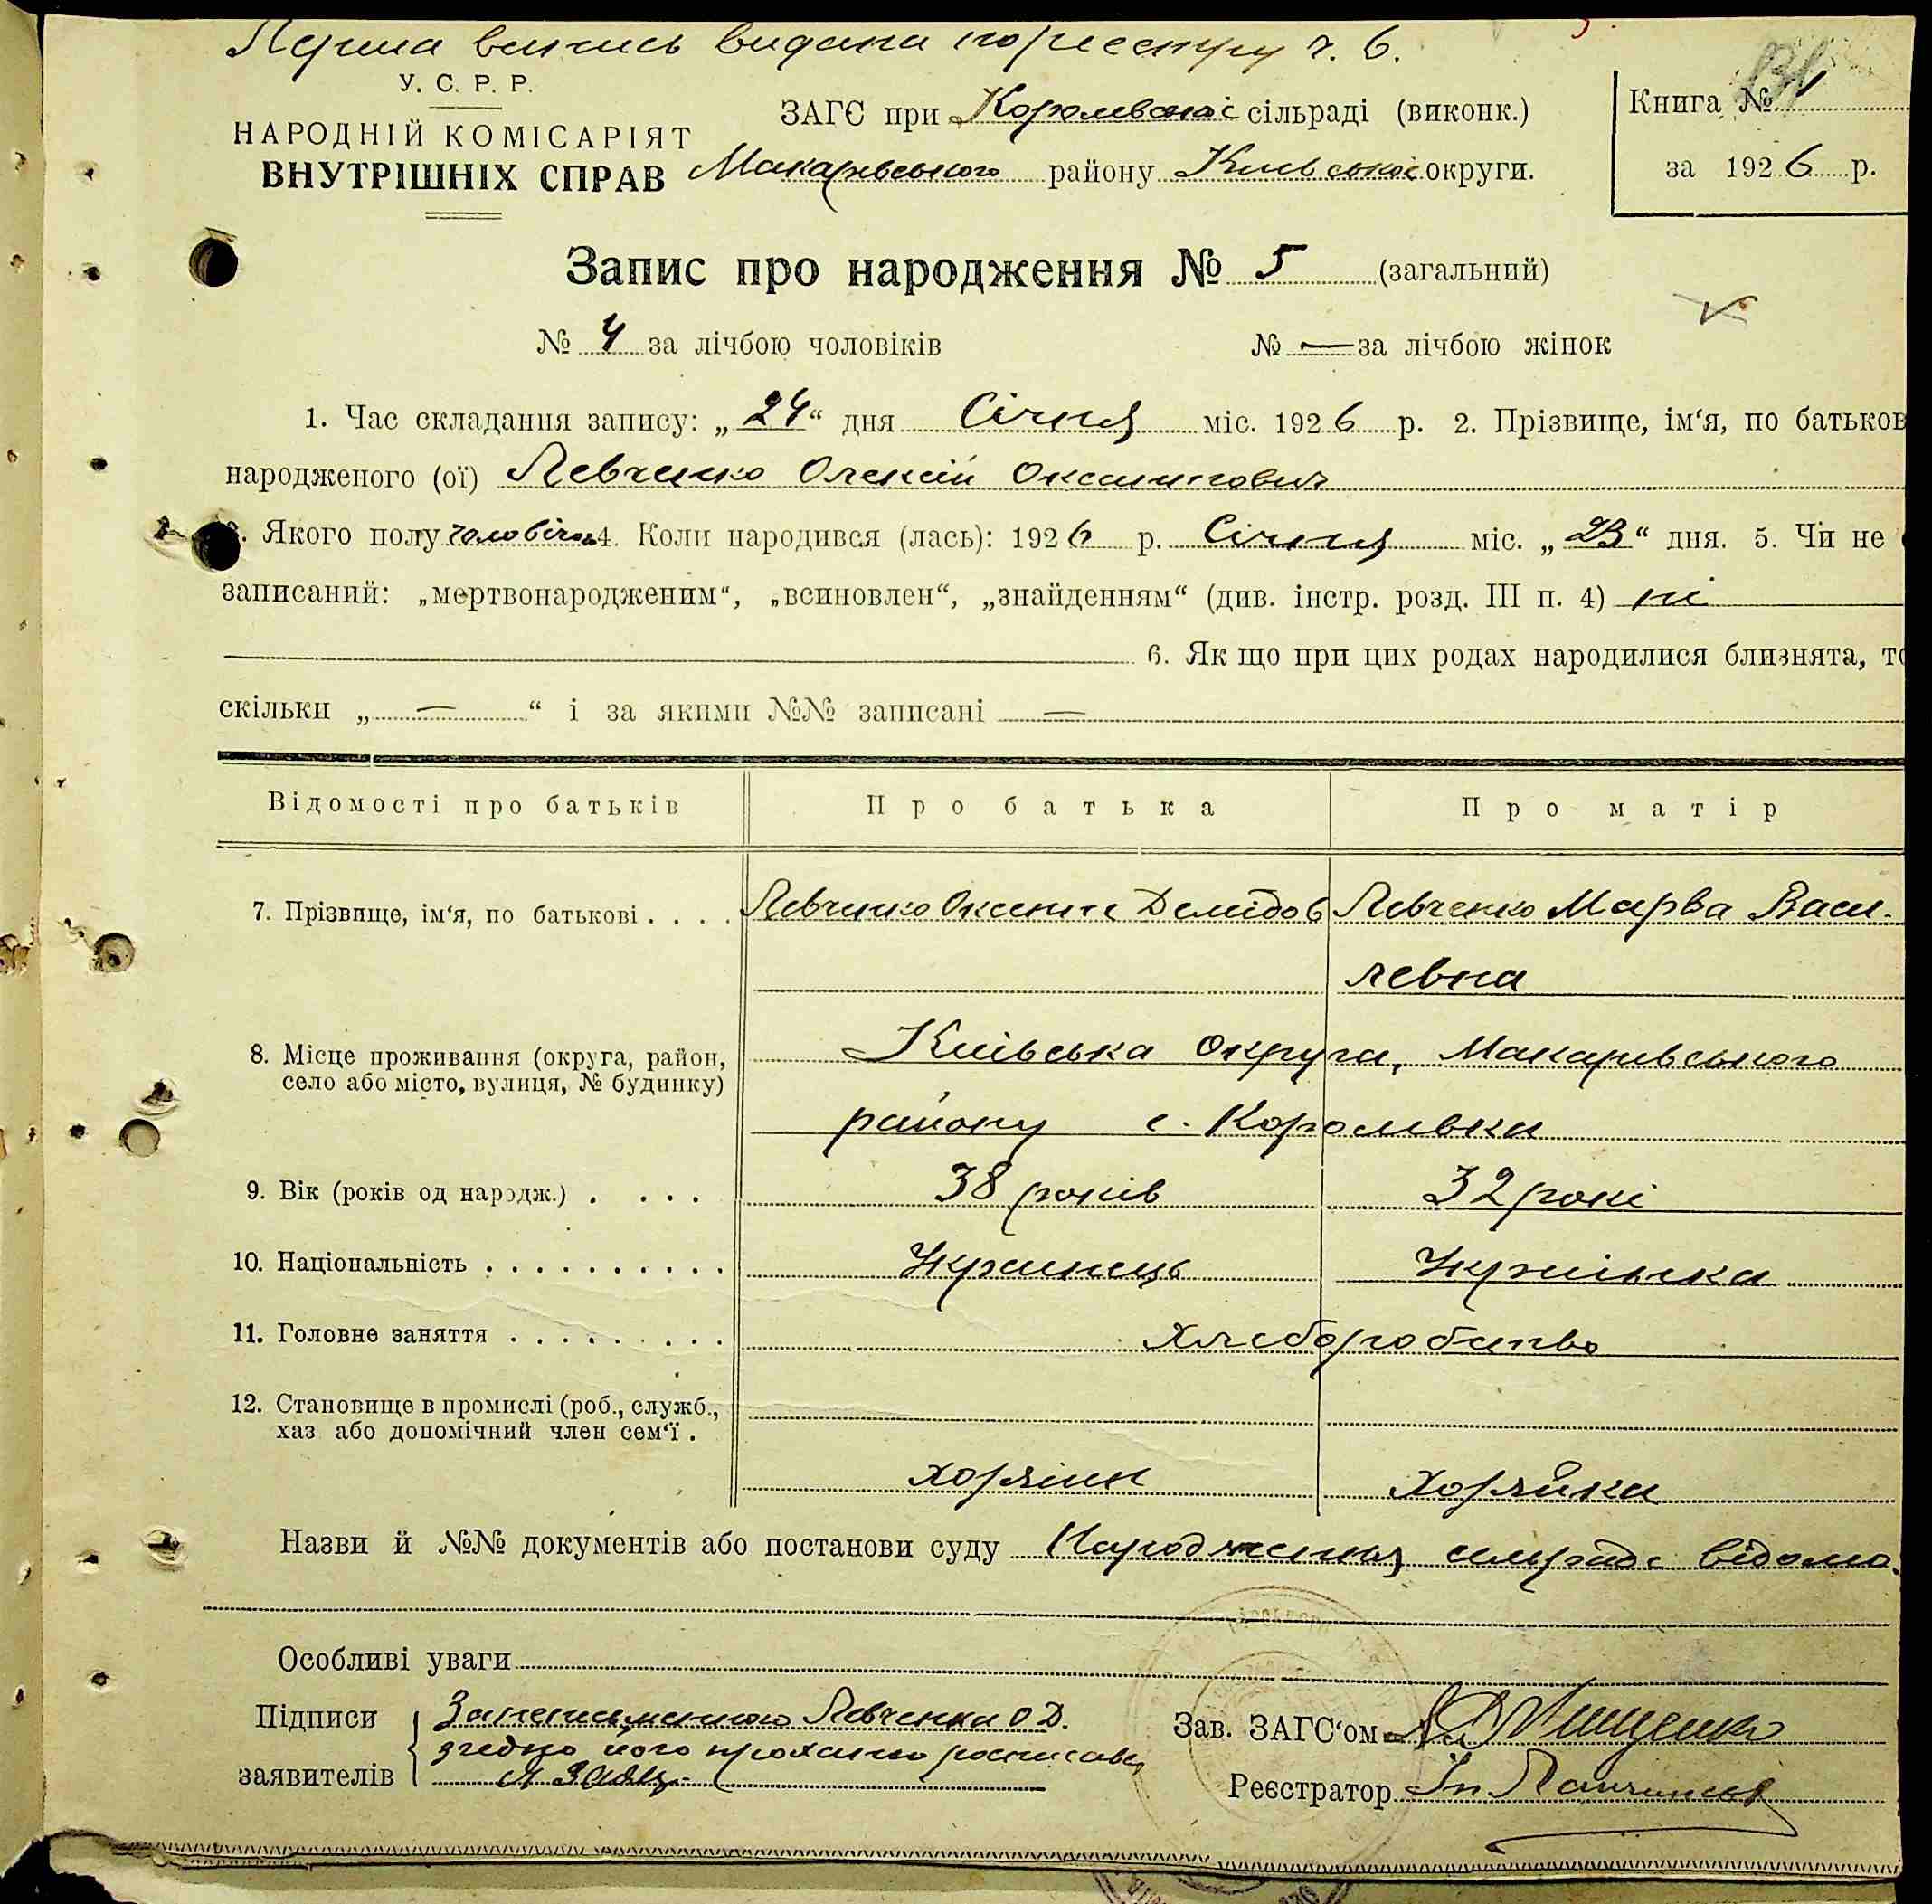 Перша випись видана по реєстру ч. 6.
У. С. Р. Р.
НАРОДНІЙ КОМІСАРІЯТ
ВНУТРІШНІХ СПРАВ
ЗАГС при Королівській сільраді (виконк.)
Макарівського району Київської округи.
Книга №
за 1926 р.
Запис про народження № 5 (загальний)
№ 4 за лічбою чоловіків № — за лічбою жінок
1. Час складання запису: „24“ дня Січня міс. 1926 р. 2. Прізвище, ім‘я, по батьков
народженого (ої) Левченко Олексій Оксентович
Якого полу чоловіч. 4. Коли народився (лась): 1926 р. Січня міс. „23“ дня. 5. Чи не
записаний: „мертвонародженим“, „всиновлен“, „знайденням“ (див. інстр. розд. III п. 4) ні
6. Як що при цих родах народилися близнята, то
скільки „ — “ і за якими №№ записані —
Відомості про батьків Про батька Про матір
7. Прізвище, ім‘я, по батькові . . . . Левченко Оксентій Демідов Левченко Марва Васи-
левна
8. Місце проживання (округа, район, Київська Округа, Макарівського
село або місто, вулиця, № будинку)
району с. Королівка
9. Вік (років од народж.) . . . . 38 років 32 рокі
10. Національність . . . . . . . . . . Українець Українка
11. Головне заняття . . . . . . . . . Хліборобство
12. Становище в промислі (роб., служб.,
хаз або допомічний член сем‘ї .
Хозяїн Хозяйка
Назви й №№ документів або постанови суду Народження сільраді відомо.
Особливі уваги
Підписи За неписьменного Левченка О Д.
згідно його прохання росписавсь
заявителів
Зав. ЗАГС‘ом
Реєстратор